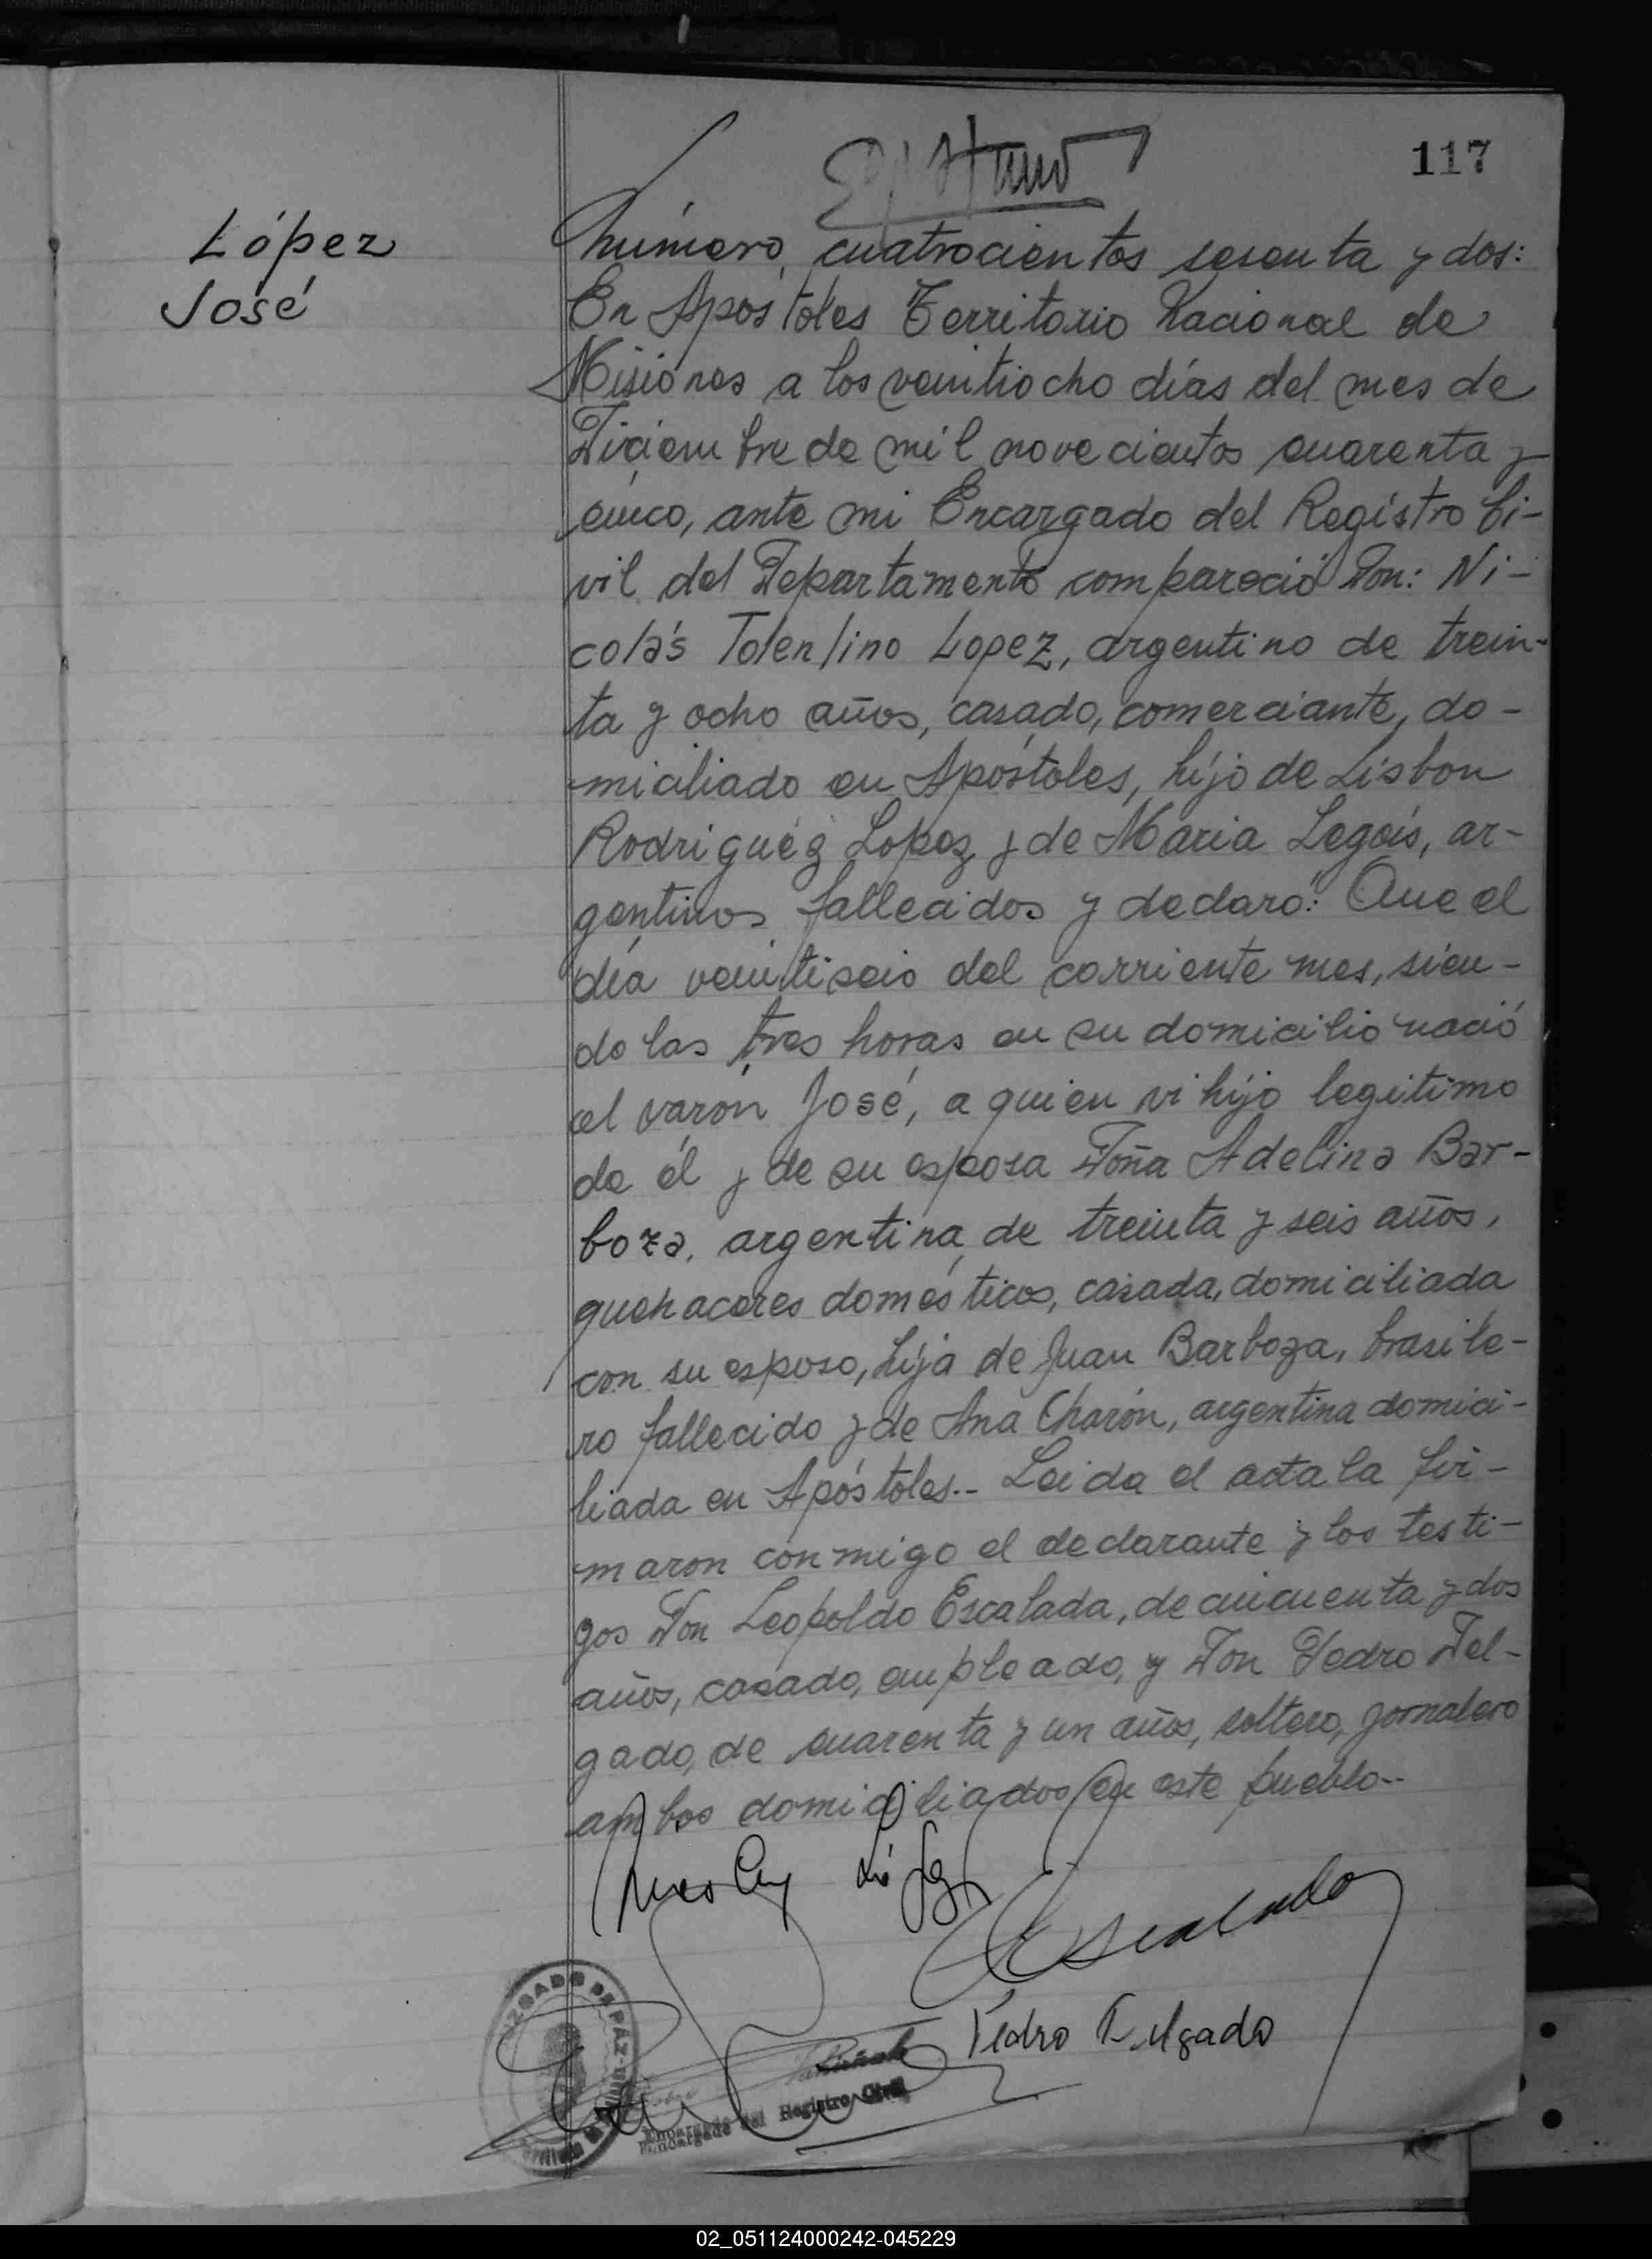 117
López
José
Número cuatrocientos sesenta y dos:
En Apóstoles Territorio Nacional de
Misiones a los veintiocho días del mes de
Diciembre de mil novecientos cuarenta y
cinco, ante mi Encargado del Registro Ci-
vil del Departamento compareció Don: Ni-
colás Tolentino Lopez, argentino de trein-
ta y ocho años, casado, comerciante, do-
miciliado en Apóstoles, hijo de Lisbon
Rodriguez Lopez y de Maria Legois, ar-
gentinos fallecidos y declaró: Que el
día veintiseis del corriente mes, sien-
do las tres horas en su domicilio nació
el varón José, a quien vi hijo legitimo
de él y de su esposa Doña Adelina Bar-
boza, argentina de treinta y seis años,
quehaceres domésticos, casada, domiciliada
con su esposo, hija de Juan Barboza, brasile-
ro fallecido y de Ana Charón, argentina domici-
liada en Apóstoles.- Leida el acta la fir-
maron conmigo el declarante y los testi-
gos Don Leopoldo Escalada, de cincuenta y dos
años, casado, empleado, y Don Pedro Del-
gado, de cuarenta y un años, soltero, jornalero
ambos domiciliados en este pueblo.-
Nicolas López
Escalada
Pedro Delgado
JUZGADO DE PAZ
Encargado del Registro Civil
02_051124000242-045229